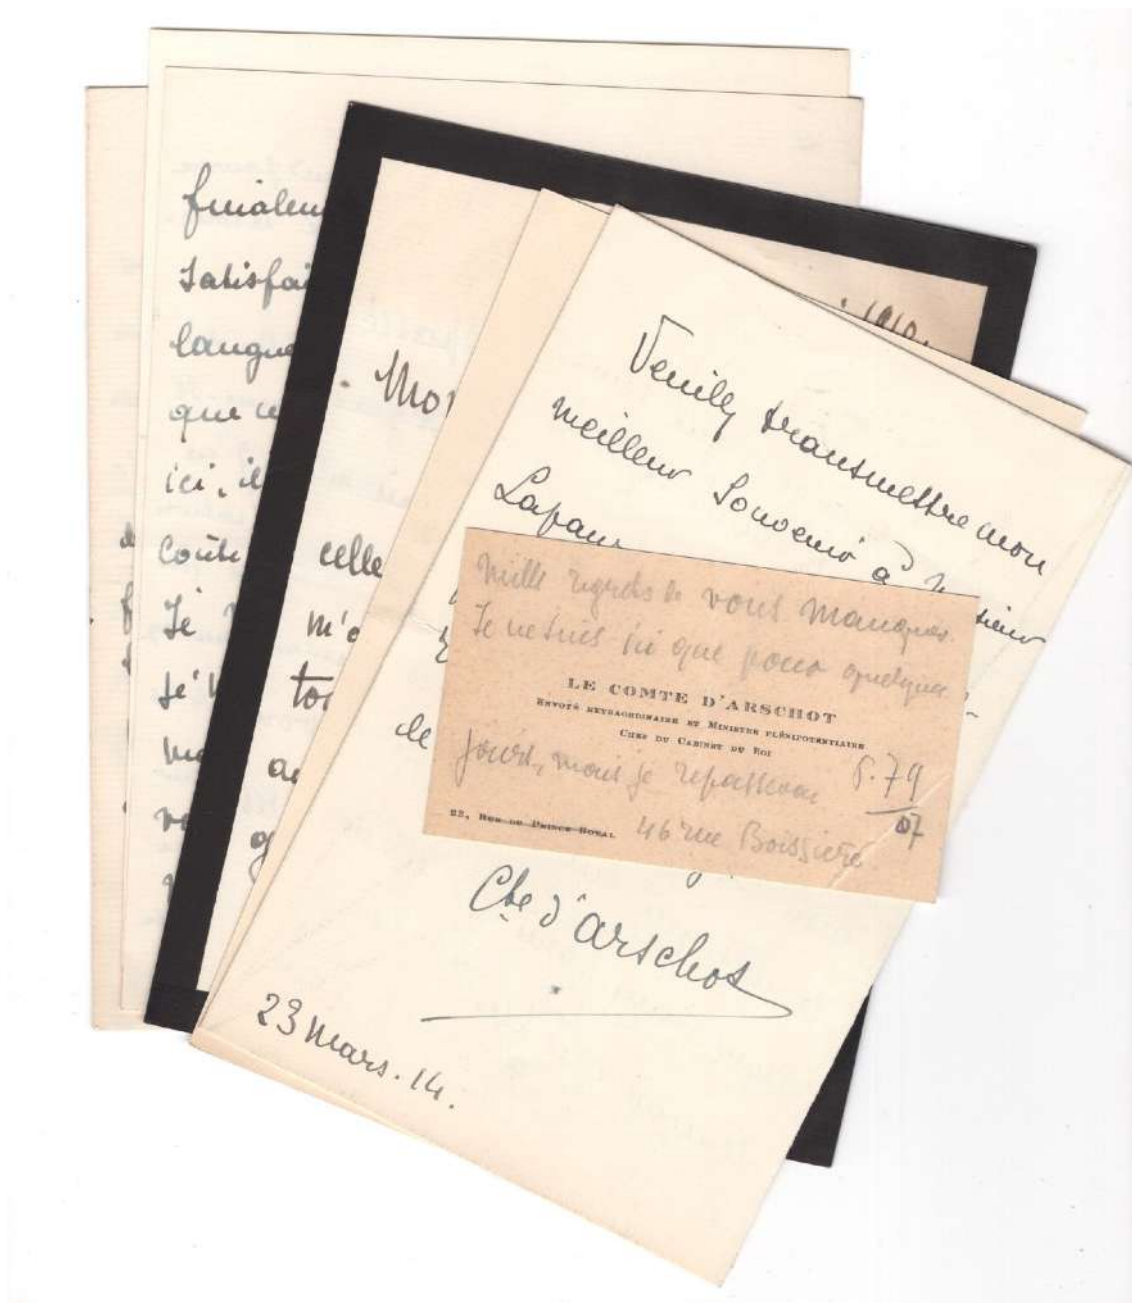 finalem
satisfai
langue
que ce
ici, il
coûte
Je
je
ma
celle
m'a
tou
1910.
Veuillez transmettre mon
meilleur Souvenir à Monsieur
Lapau
de
Cte d'arschot
23 mars. 14.
Mille regrets de vous manquer.
Je ne suis ici que pour quelques
LE COMTE D'ARSCHOT
ENVOYÉ EXTRAORDINAIRE ET MINISTRE PLÉNIPOTENTIAIRE
CHEF DU CABINET DU ROI
jours, mais je repasserai
22, RUE DU PRINCE ROYAL 46 rue Boissière
P. 79
07